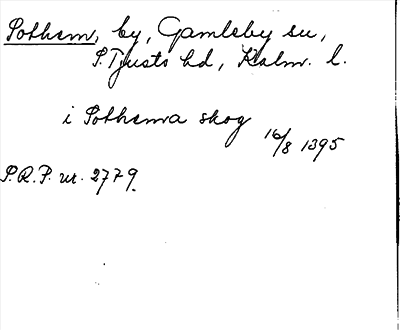 Pothem, by, Gamleby sn,
S. Tjusts hd, Kalm. l.
i Pothema skog
16/8 1395
S.R.P. nr. 2779.